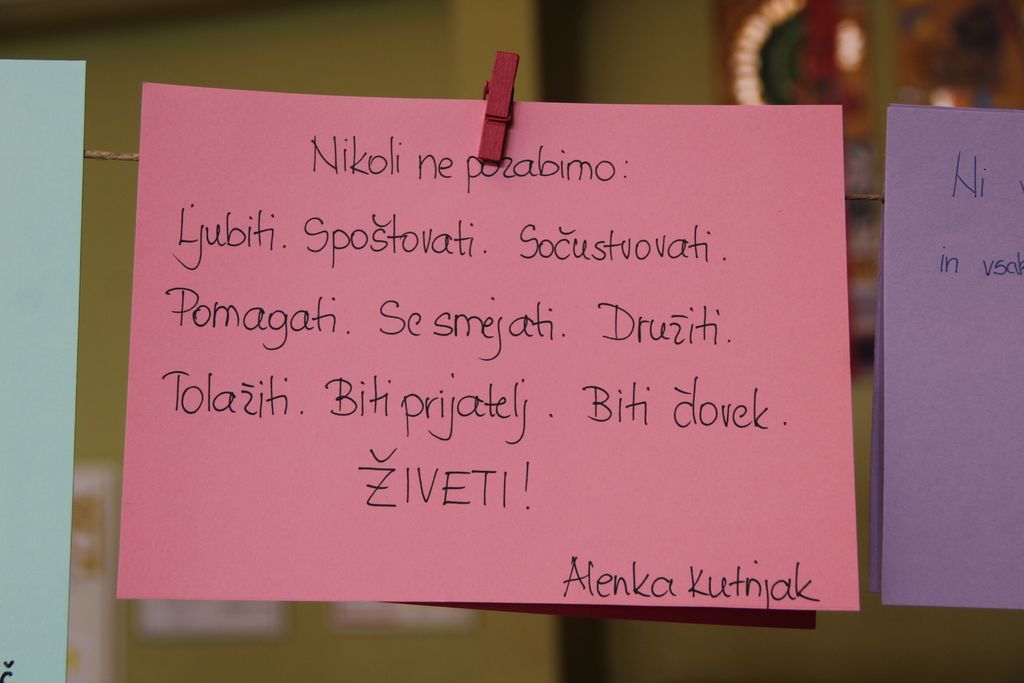 Nikoli ne pozabimo:
Ljubiti. Spoštovati. Sočustvovati.
Pomagati. Se smejati. Družiti.
Tolažiti. Biti prijatelj. Biti človek.
ŽIVETI!
Alenka Kutnjak
Ni
in
č